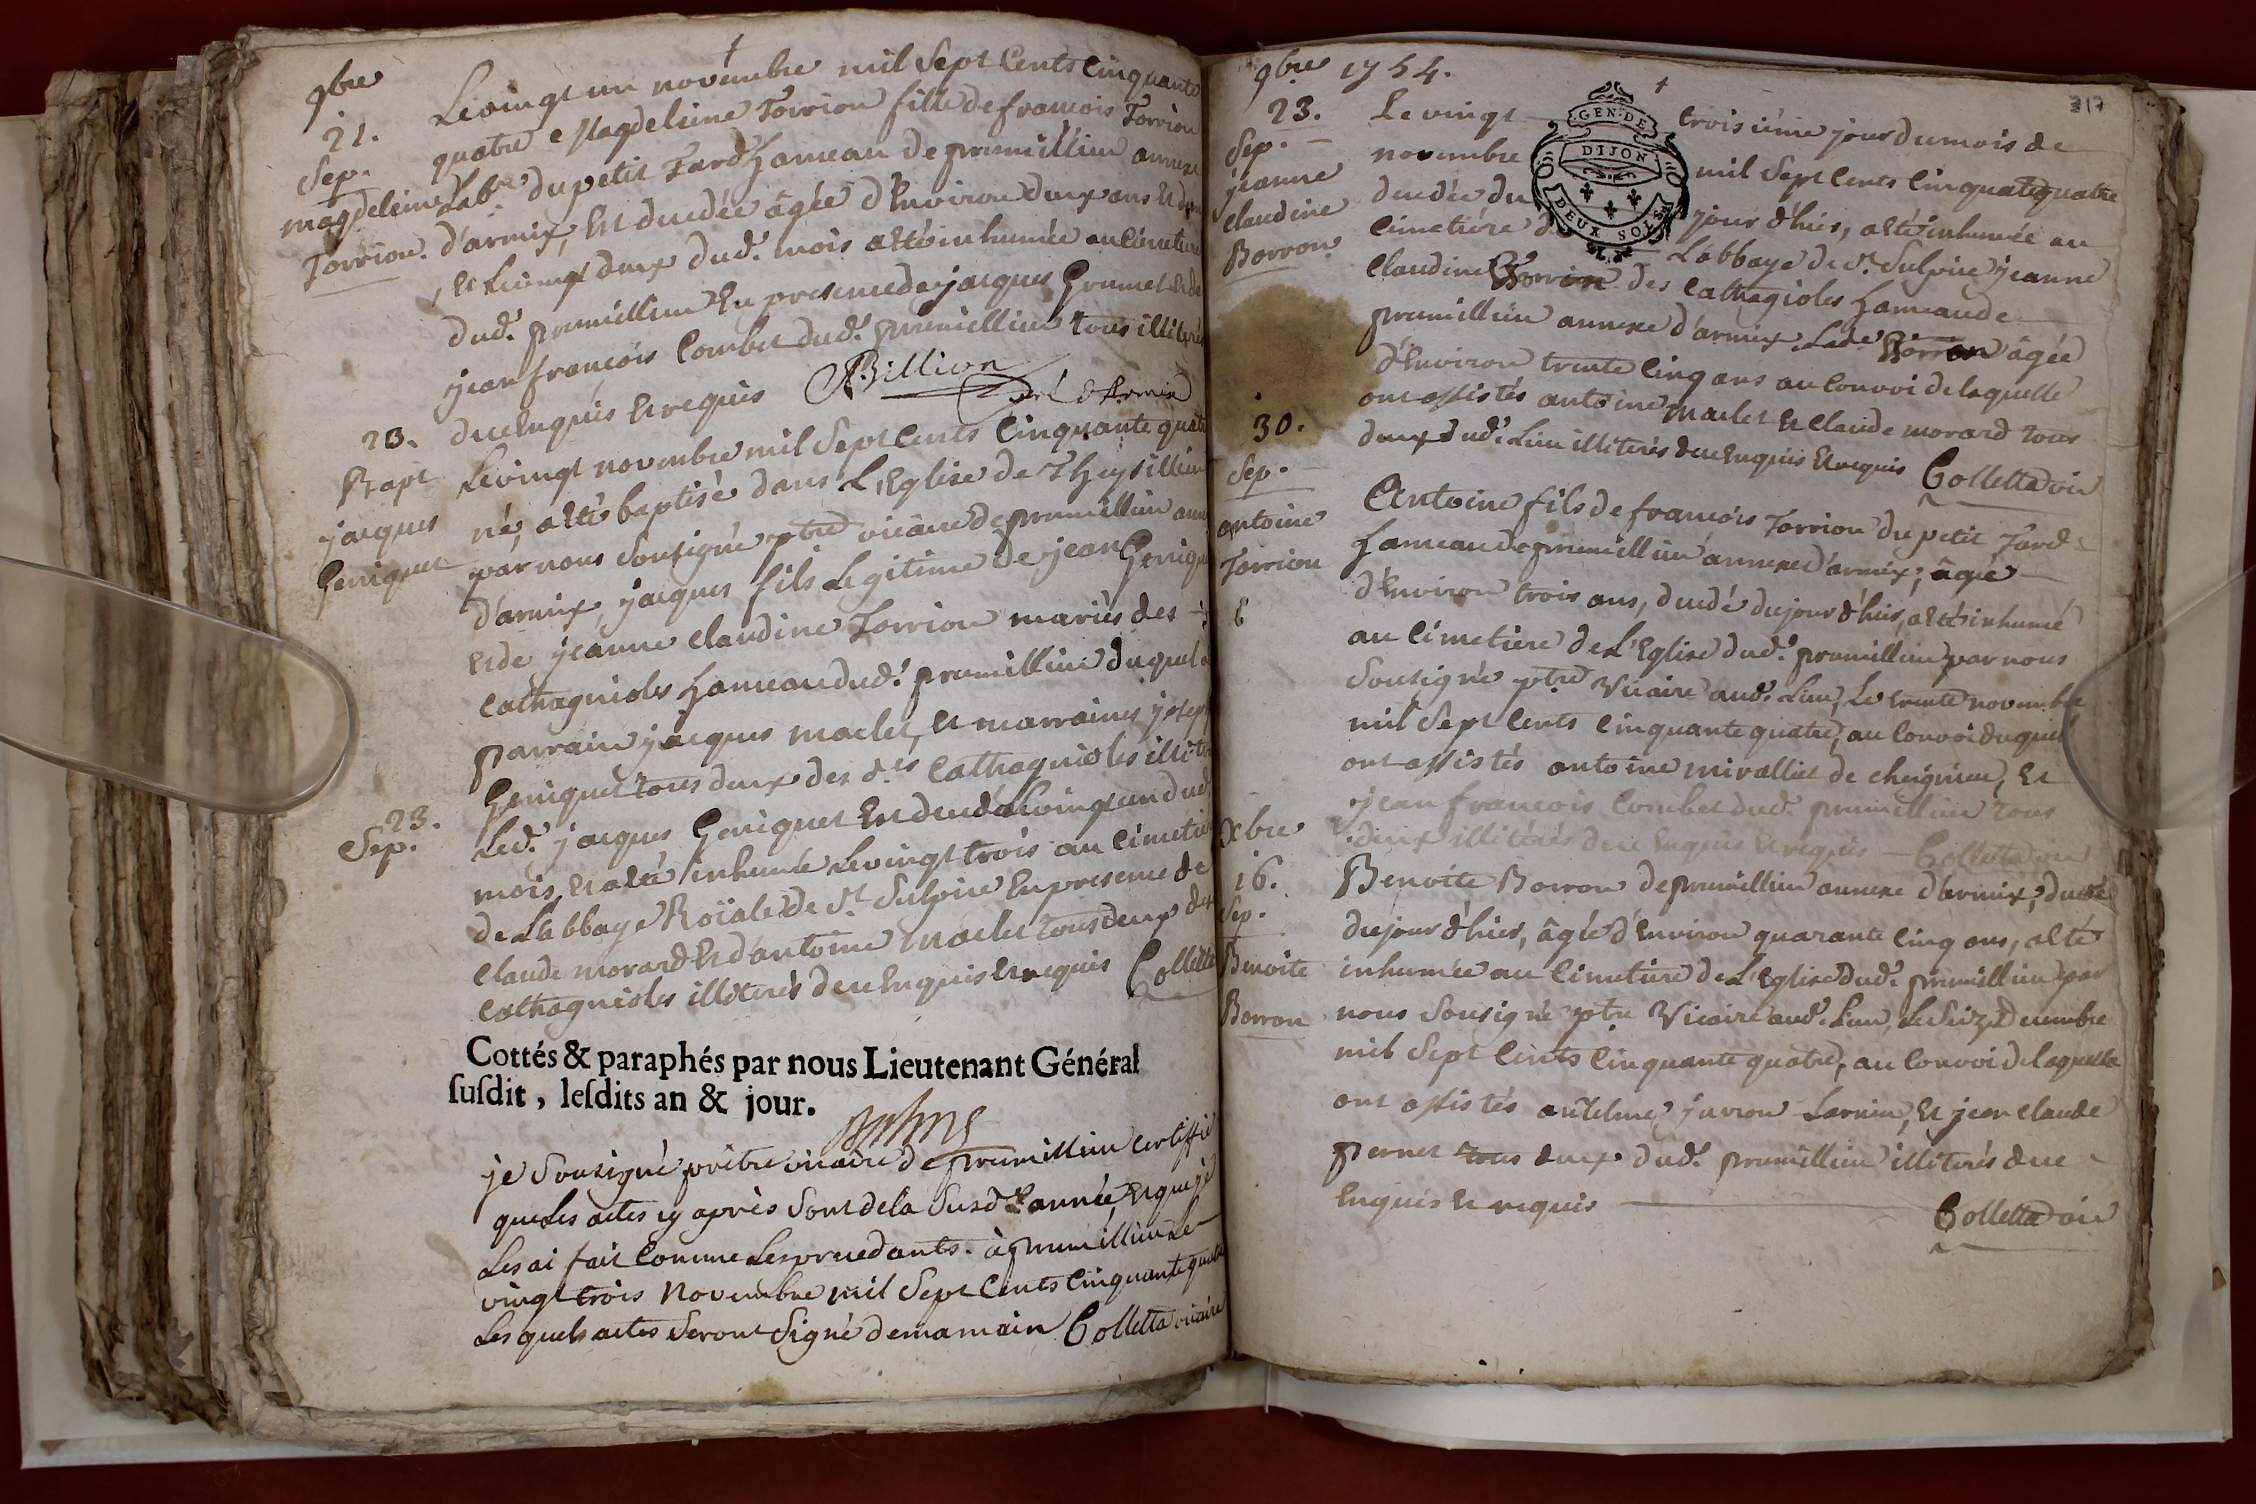 9bre
21.
Sep.
magdeleine
Torrion.
Le vingt un novembre mil Sept Cents Cinquante
quatre Magdeleine Torrion fille de francois Torrion
Lab.r du petit Tard hameau de prumillieu annexe
d'armix, Est decedée âgée d'Environ deux ans Et
, et Le vingt deux dud. mois a Eté inhumée au Cimetiere
dud. prumillieu En presence de jacques Grumet Et de
jean francois Combet dud. prumillieu tous illiterés
de ce Enquis Et requis Billion
curé d'Armix
23.
Bapt
jacques
Geniquet
Le vingt novembre mil Sept Cents Cinquante quatre
né, a Eté baptisé dans L'Eglise de Theysillieu
par nous Sousigné ptre vicaire de prumillieu
d'armix, jacques fils Legitime de jean Geniquet
Et de jeanne claudine Torrion mariés des
Cathagnioles hameau dud. prumillieu duquel a
parrain jacques maclet, et marraine joseph
Geniquet tous deux des d.es Cathagnioles
23.
Sep.
Led. jacques Geniquet Est decedé Le vingt un dud.
mois, Et a Eté inhumé Le vingt trois au Cimetiere
de L'abbaye Roïale de St. Sulpice En presence de
Claude morard Et d'antoine maclet tous deux des
Cathagnioles illiterés de ce Enquis Et requis Colletta
Cottés & paraphés par nous Lieutenant Général
ſuſdit, leſdits an & jour.
je Sousigné prêtre vicaire de prumillieu certiffie
que Les actes cy après Sont de la Susd.e année, Et que je
Les ai fait Comme Les precedants. à prumillieu Le
vingt trois Novembre mil Sept Cents Cinquante quatre
Les quels actes Seront Signé de ma main Colletta vicaire
9bre 1754.
317
23.
Sep.
jeanne
claudine
Borron
GEN·DE
DIJON
DEUX SOLS
Le vingt trois iéme jour du mois de
novembre mil Sept Cents Cinquante quatre
decedée du jour d'hier, a Eté inhumée au
Cimetiére de L'abbaye de St. Sulpice jeanne
Claudine Borron des Cathagioles hameau de
prumillieu annexe d'armix. Lad.e Borron âgée
d'Environ trente Cinq ans au Convoi de laquelle
ont assistés antoine maclet Et Claude morard tous
deux dud. Lieu illiterés de ce Enquis Et requis Colletta vic
30.
Sep.
antoine
Torrion
Antoine fils de francois Torrion du petit Tard
hameau de prumillieu annexe d'armix, âgé
d'Environ trois ans, decedé du jour d'hier, a Eté inhumé
au Cimetiere de L'Eglise dud. prumillieu par nous
Sousigné ptre Vicaire aud. Lieu, Le trente novembre
mil Sept Cents Cinquante quatre, au Convoi duquel
ont assistés antoine miralliet de cheignieu, Et
jean francois Combet dud. prumillieu tous
deux illiterés de ce Enquis Et requis Colletta vic
Xbre
16.
Sep.
Benoite
Borron
Benoite Borron de prumillieu annexe d'armix, decedée
du jour d'hier, âgée d'Environ quarante Cinq ans, a Eté
inhumée au Cimetiere de L'Eglise dud. prumillieu par
nous Sousigné ptre Vicaire aud. Lieu, Le Seize Decembre
mil Sept Cents Cinquante quatre, au Convoi de laquelle
ont assistés antelme juvron Larnin, Et jean claude
pernet tous deux dud. prumillieu illiterés de ce
Enquis Et requis Colletta vic